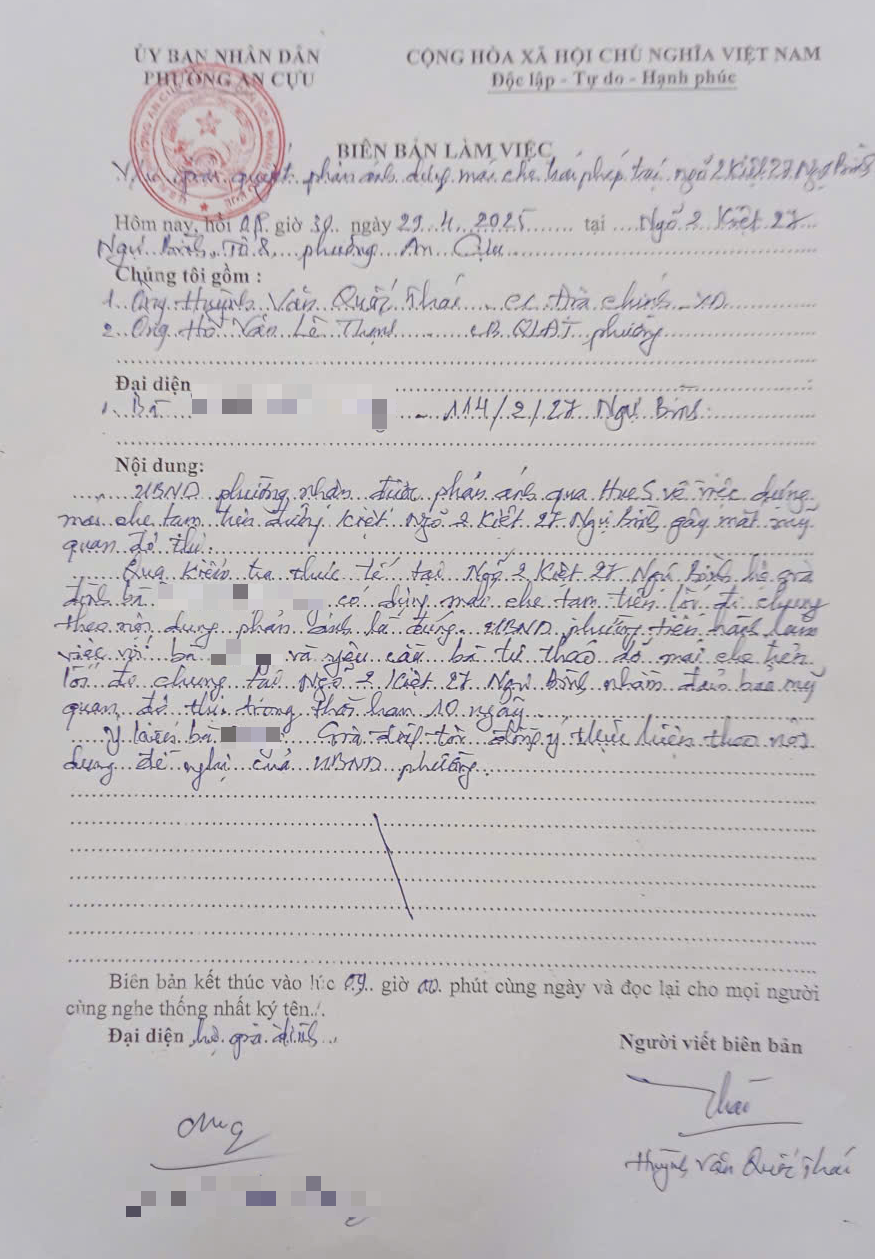 ỦY BAN NHÂN DÂN
PHƯỜNG AN CỰU
CỘNG HÒA XÃ HỘI CHỦ NGHĨA VIỆT NAM
Độc lập - Tự do - Hạnh phúc
BIÊN BẢN LÀM VIỆC
V/v giải quyết phản ánh dựng mái che trái phép tại ngõ 2 Kiệt 27 Ngự Bình
Hôm nay, hồi 08 giờ 30 ngày 29.4.2025 tại Ngõ 2 Kiệt 27
Ngự Bình, Tổ 8, phường An Cựu
Chúng tôi gồm :
1. Ông Huỳnh Văn Quốc Thái - CC Địa chính - XD
2. Ông Hồ Văn Lê Thịnh CB QLĐT phường
Đại diện
1. Bà - 114/2/27 Ngự Bình
Nội dung:
UBND phường nhận được phản ánh qua HueS về việc dựng
mái che tạm trên đường kiệt Ngõ 2 Kiệt 27 Ngự Bình gây mất mỹ
quan đô thị.
Qua kiểm tra thực tế tại Ngõ 2 Kiệt 27 Ngự Bình hộ gia
đình bà có dựng mái che tạm trên lối đi chung
theo nội dung phản ánh là đúng. UBND phường tiến hành làm
việc với bà và yêu cầu bà tự tháo dỡ mái che trên
lối đi chung tại Ngõ 2 Kiệt 27 Ngự Bình nhằm đảm bảo mỹ
quan đô thị trong thời hạn 10 ngày
Ý kiến bà Gia đình tôi đồng ý thực hiện theo nội
dung đề nghị của UBND phường.
Biên bản kết thúc vào lúc 09 giờ 00 phút cùng ngày và đọc lại cho mọi người
cùng nghe thống nhất ký tên./.
Đại diện hộ gia đình
Người viết biên bản
Thái
Huỳnh Văn Quốc Thái